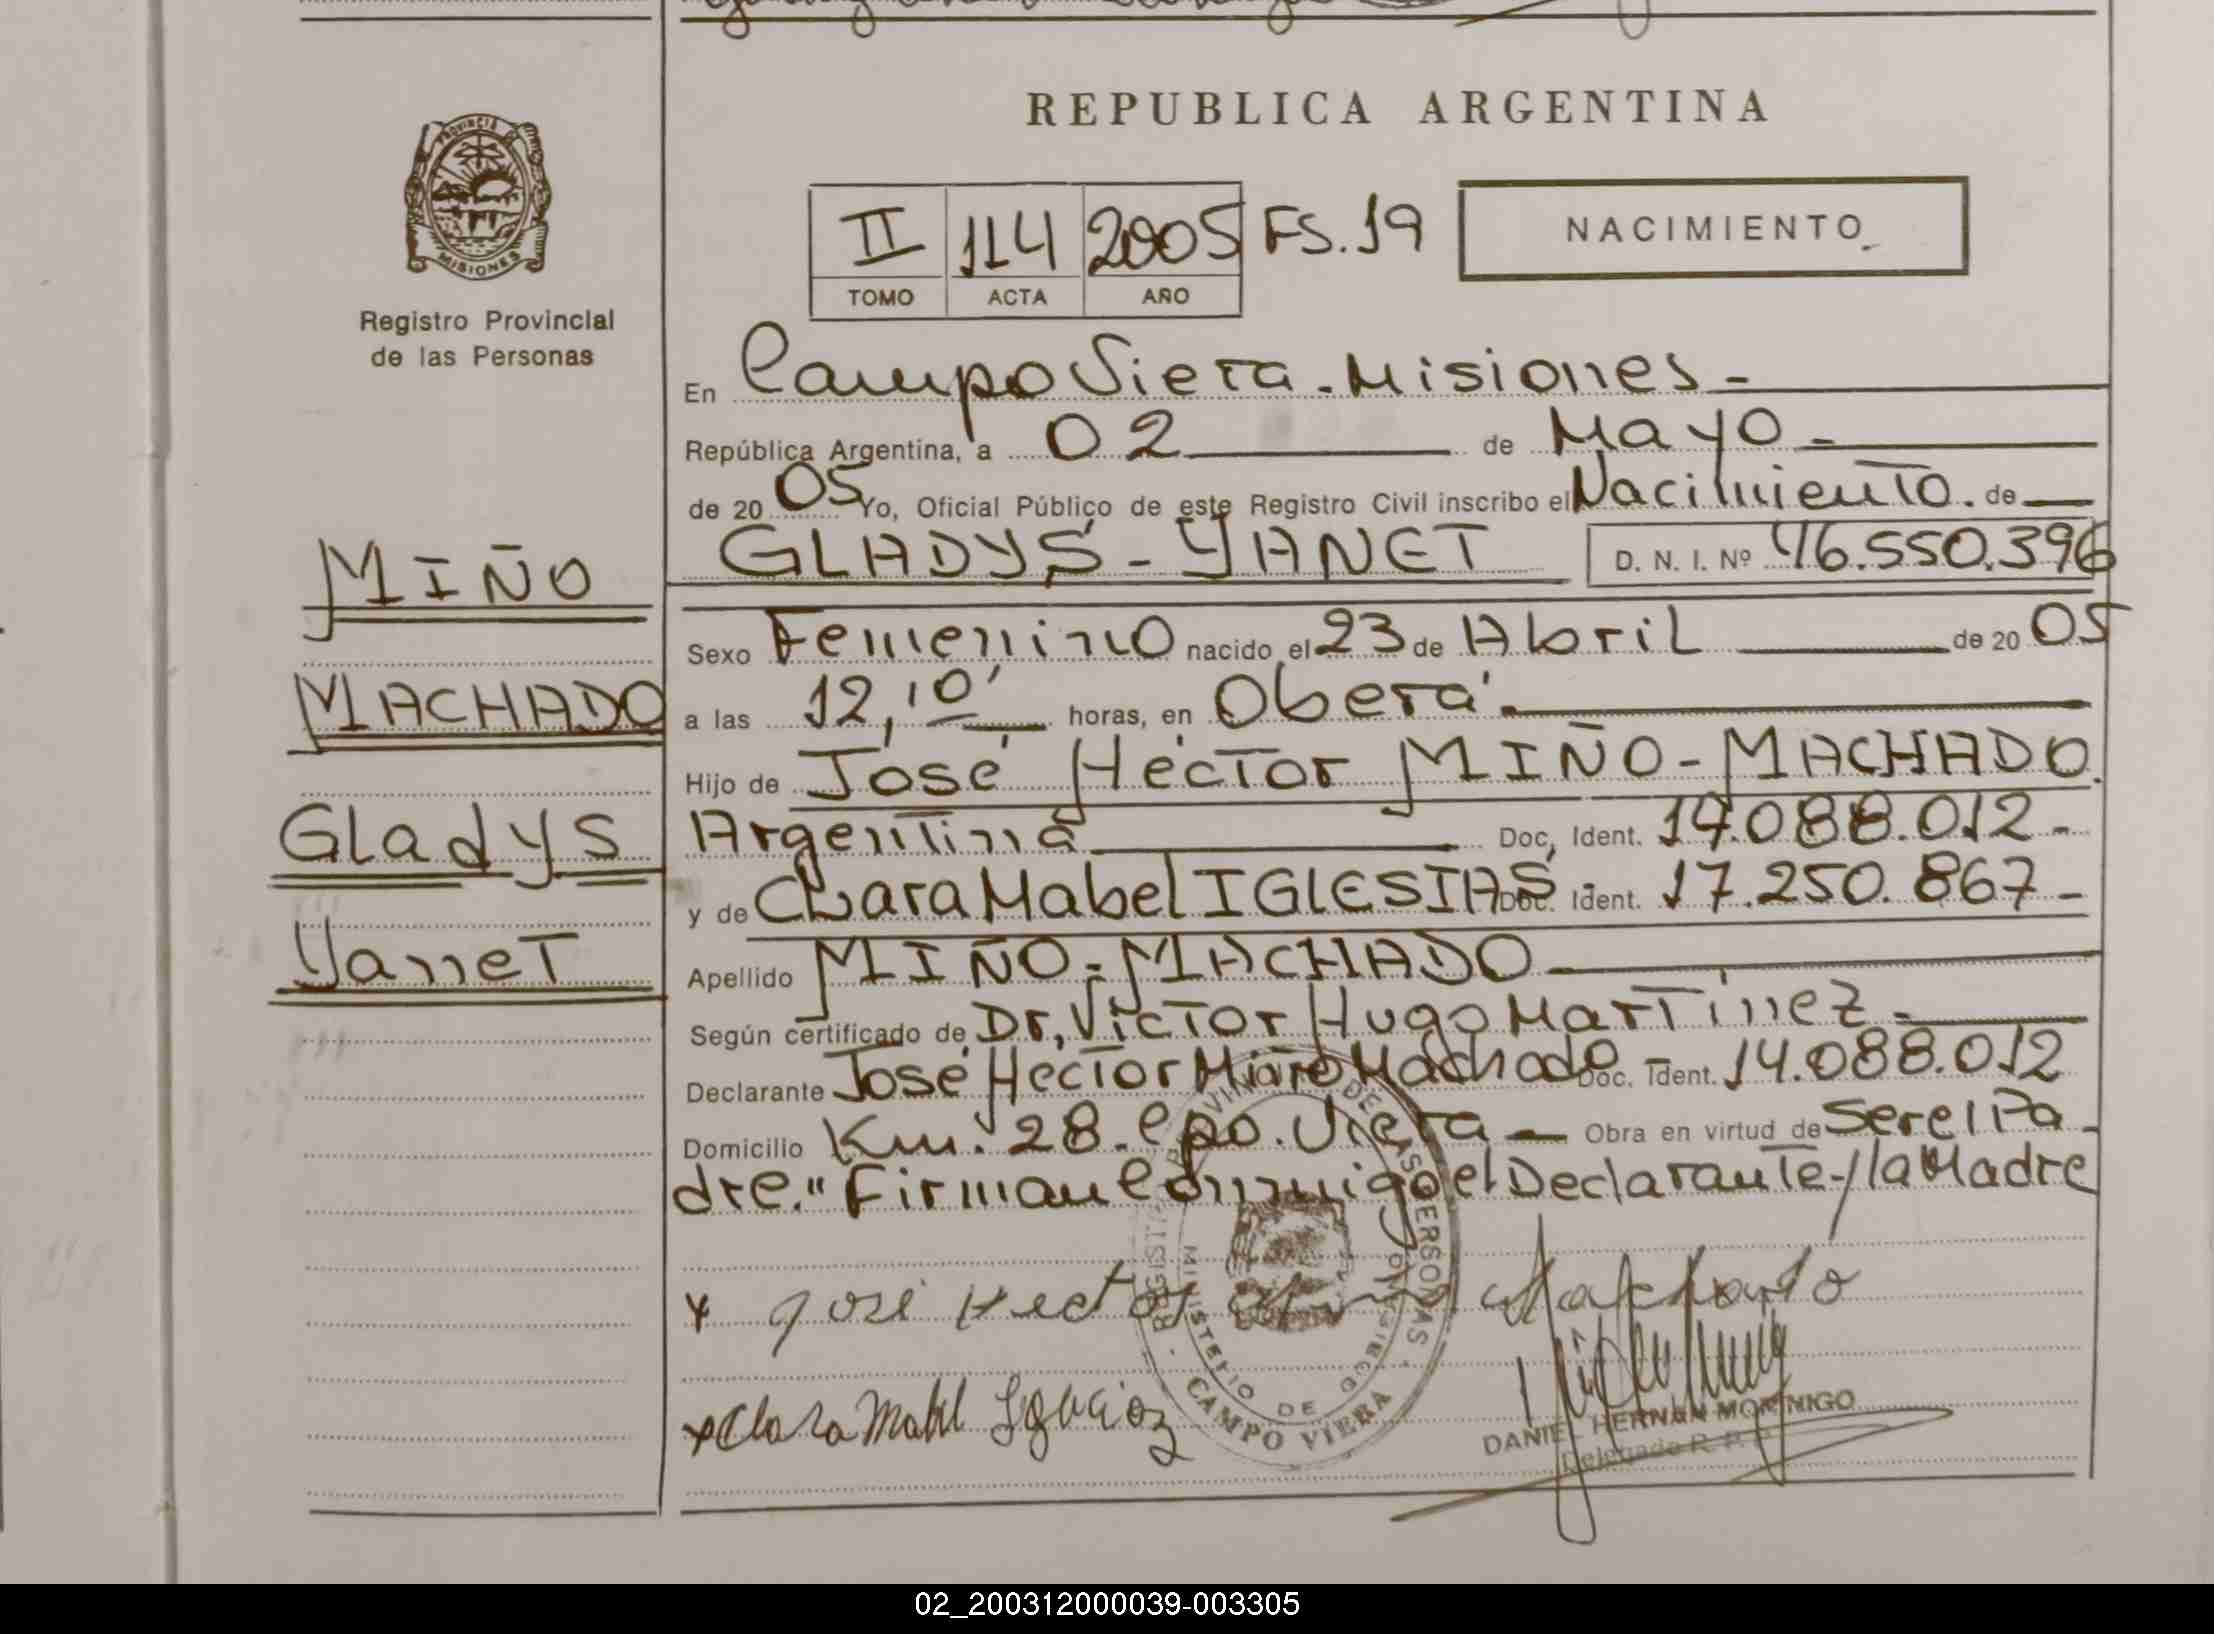 REPUBLICA ARGENTINA
PROVINCIA
MISIONES
Registro Provincial
de las Personas
II 114 2005 FS.19
TOMO ACTA AÑO
NACIMIENTO
En Campo Viera - Misiones -
República Argentina, a 02 de Mayo -
de 2005 Yo, Oficial Público de este Registro Civil inscribo el Nacimiento. de
GLADYS - YANET D. N. I. Nº 46.550.396
MIÑO
MACHADO
Gladys
Yanet
Sexo Femenino nacido el 23 de Abril de 2005
a las 12,10' horas, en Oberá
Hijo de José Héctor MIÑO - MACHADO.
Argentina Doc. Ident. 14.088.012 -
y de Clara Mabel IGLESIAS Doc. Ident. 17.250.867 -
Apellido MIÑO - MACHADO
Según certificado de Dr, Víctor Hugo Martínez -
Declarante José Héctor Miño Machado Doc. Ident. 14.088.012
Domicilio Km. 28. Cpo. Viera Obra en virtud de Ser el Pa-
dre." Firman Conmigo el Declarante y la Madre
José Hector Machado
x Clara Mabel
MINISTERIO DE GOBIERNO
CAMPO VIERA
DANIEL HERNAN MORINIGO
Delegado R. P. P.
02_200312000039-003305